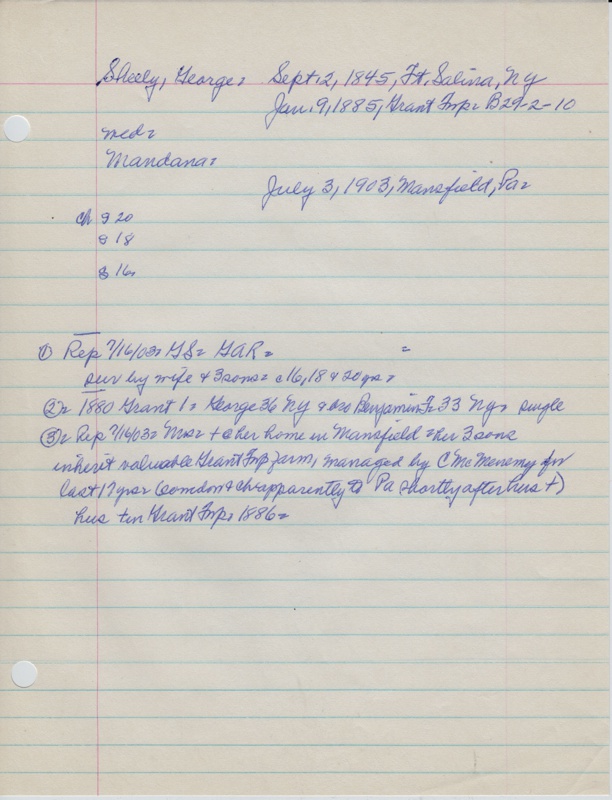 Sheely, George= Sept. 2, 1845, Ft. Salina, Ny
Jan. 9, 1885, Grant Twp= B29-2-10
med=
Mandana=
July 3, 1903, Mansfield, Pa=
ch 20
18
16=
① Rep 7/16/03= GS= GAR= =
sur by wife + 3 sons= c16, 18 & 20 yrs=
②= 1880 Grant 1= George 36 Ny & bro Benjamin F= 33 Ny= single
③= Rep 7/16/03= Mrs= + @ her home in Mansfield= her 3 sons
inherit valuable Grant Twp farm, managed by C McMenemy for
last 17 yrs= ( & ch apparently to Pa shortly after hus +)
hus + in Grant Twp= 1886=